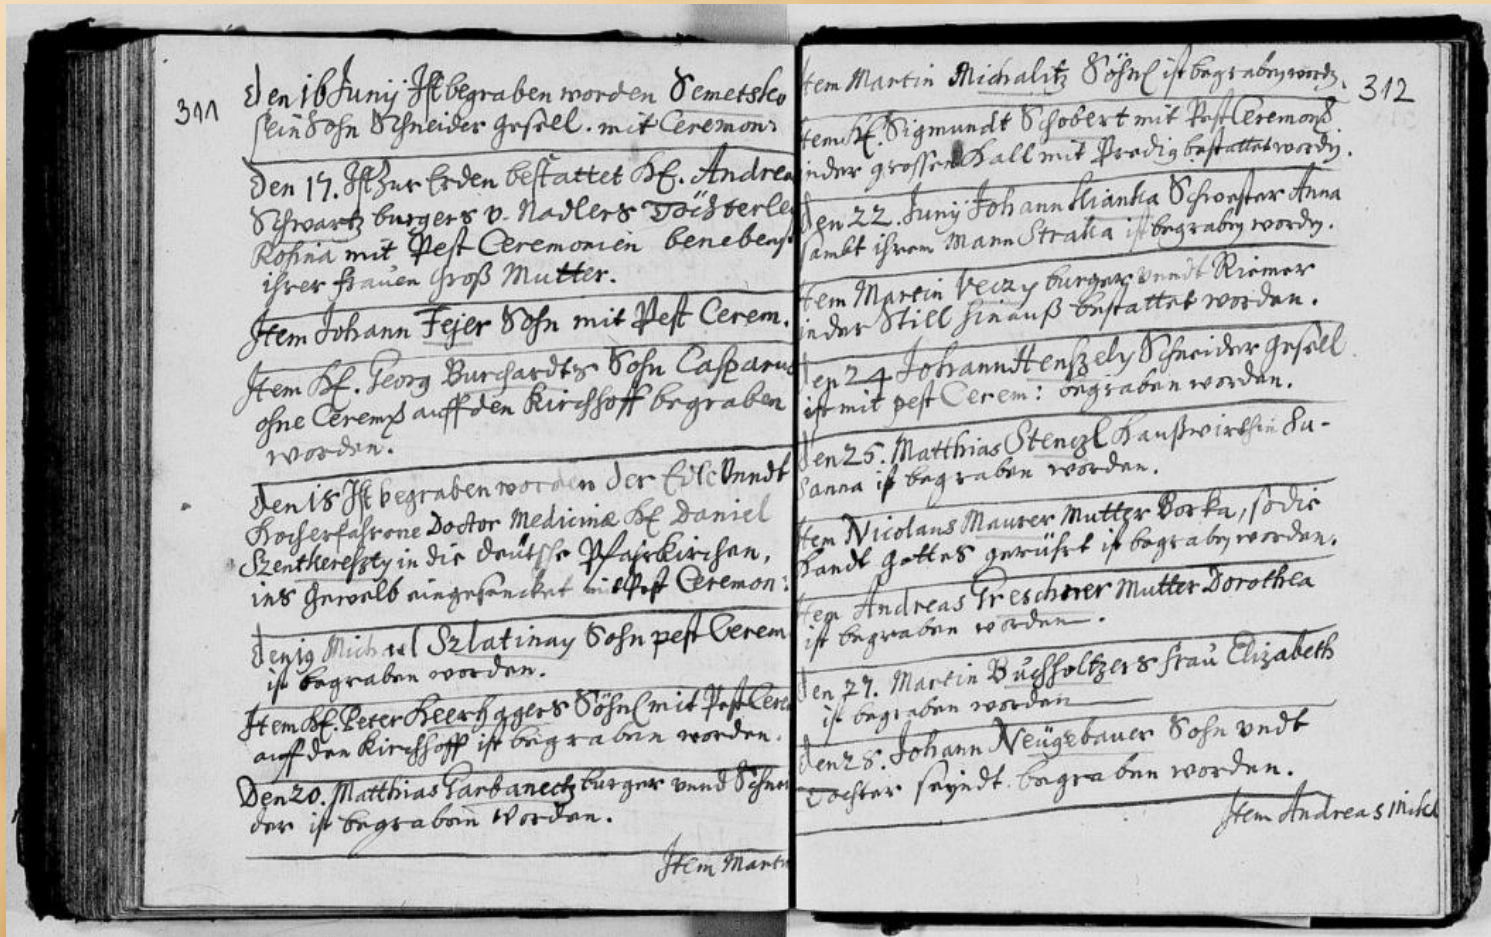 311
Den 16 Junij Ist begraben worden Semetsko
sein Sohn Schneider gesell. mit Ceremon:
Den 17. Ist Zur Erden bestattet H. Andrea
Schwartz burgers v. Nadlers Töchterle
Rosina mit Pest Ceremonien benebenst
ihrer frauen Groß Mutter.
Item Johann Fejer Sohn mit Pest Cerem.
Item H. Georg Burchardts Sohn Casparus
ohne Cerem auff den Kirchhoff begraben
worden.
Den 18 Ist begraben worden der Edle Vnndt
Hocherfahrene Doctor Medicinæ H. Daniel
Szentkereszty in die deütsche Pfarkirchen,
ins Gewelb eingesencket mit Pest Ceremon:
Den 19 Michael Szlatinay Sohn pest Cerem
ist begraben worden.
Item H. Peter Keerhagers Söhnl mit Pest Cere
auff den Kirchhoff ist begraben worden.
Den 20. Matthias Garbanectz burger vnnd Schnei
der ist begraben worden.
Item Martin
312
Item Martin Michalitz Söhnl ist begraben word.
Item H. Sigmundt Schobert mit Pest Ceremon
in der grossen Hall mit Predig bestattet worden.
Den 22. Junij Johann Kianka Schwester Anna
sambt ihrem Mann Straka ist begraben worden.
Item Martin Veczy burger vnndt Riemer
in der Still hinauß bestattet worden.
Den 24 Johann Henszely Schneider gesell
ist mit pest Cerem: begraben worden.
Den 25. Matthias Stenczl Haußwirthin Su-
sanna ist begraben worden.
Item Nicolaus Maurer Mutter Borka, so die
Handt Gottes gerührt ist begraben worden.
Item Andreas Greschner Mutter Dorothea
ist begraben worden.
Den 27. Martin Buchholtzers frau Elizabeth
ist begraben worden
Den 28. Johann Neügebauer Sohn vndt
Tochter seyndt begraben worden.
Item Andreas Mikl